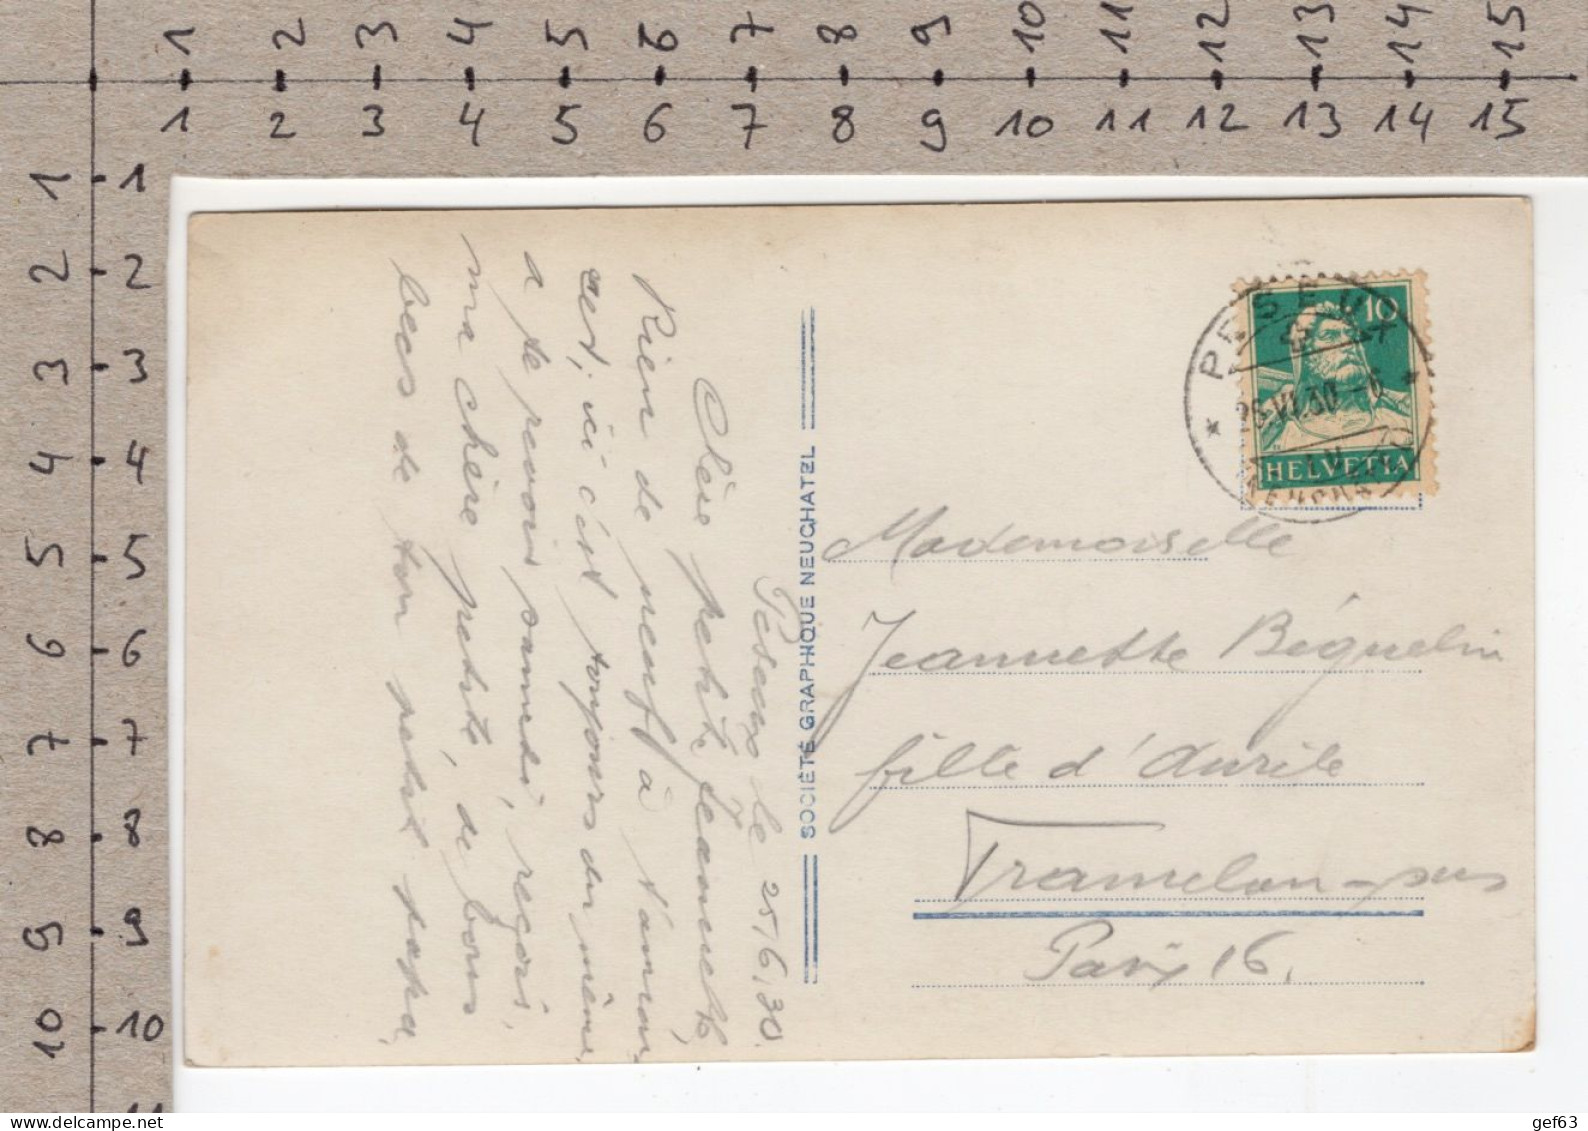 1 2 3 4 5 6 7 8 9 10 11 12 13 14 15
1 2 3 4 5 6 7 8 9 10 11 12 13 14 15
1 1
2 2
3 3
4 4
5 5
6 6
7 7
8 8
9 9
10 10
11
Peseux le 25,6,30.
Chère petite Jeannette,
Rien de neuf à
ici c'est toujours du même,
a te revoir samedi, reçois,
ma chère petite, de bons
becs de ton petit papa,
SOCIÉTÉ GRAPHIQUE NEUCHATEL
10
HELVETIA
PESEUX
VI.30 -6
Mademoiselle
Jeannette Béguelin
fille d'Aurile
Tramelan-
16.
delcampe.net
gef63